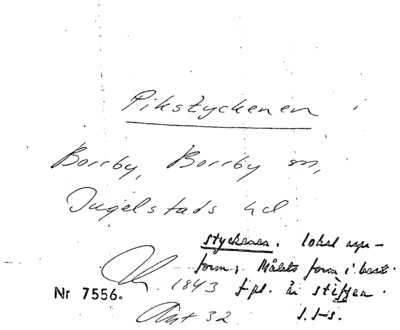 Pikstyckenen
Borrby, Borrby sn,
Ingelstads hd
styckena. lokal upp-
form; Målets form i best.
1843 f pl. är stÿffen.
Nr 7556.
Akt 32 S. I-s.